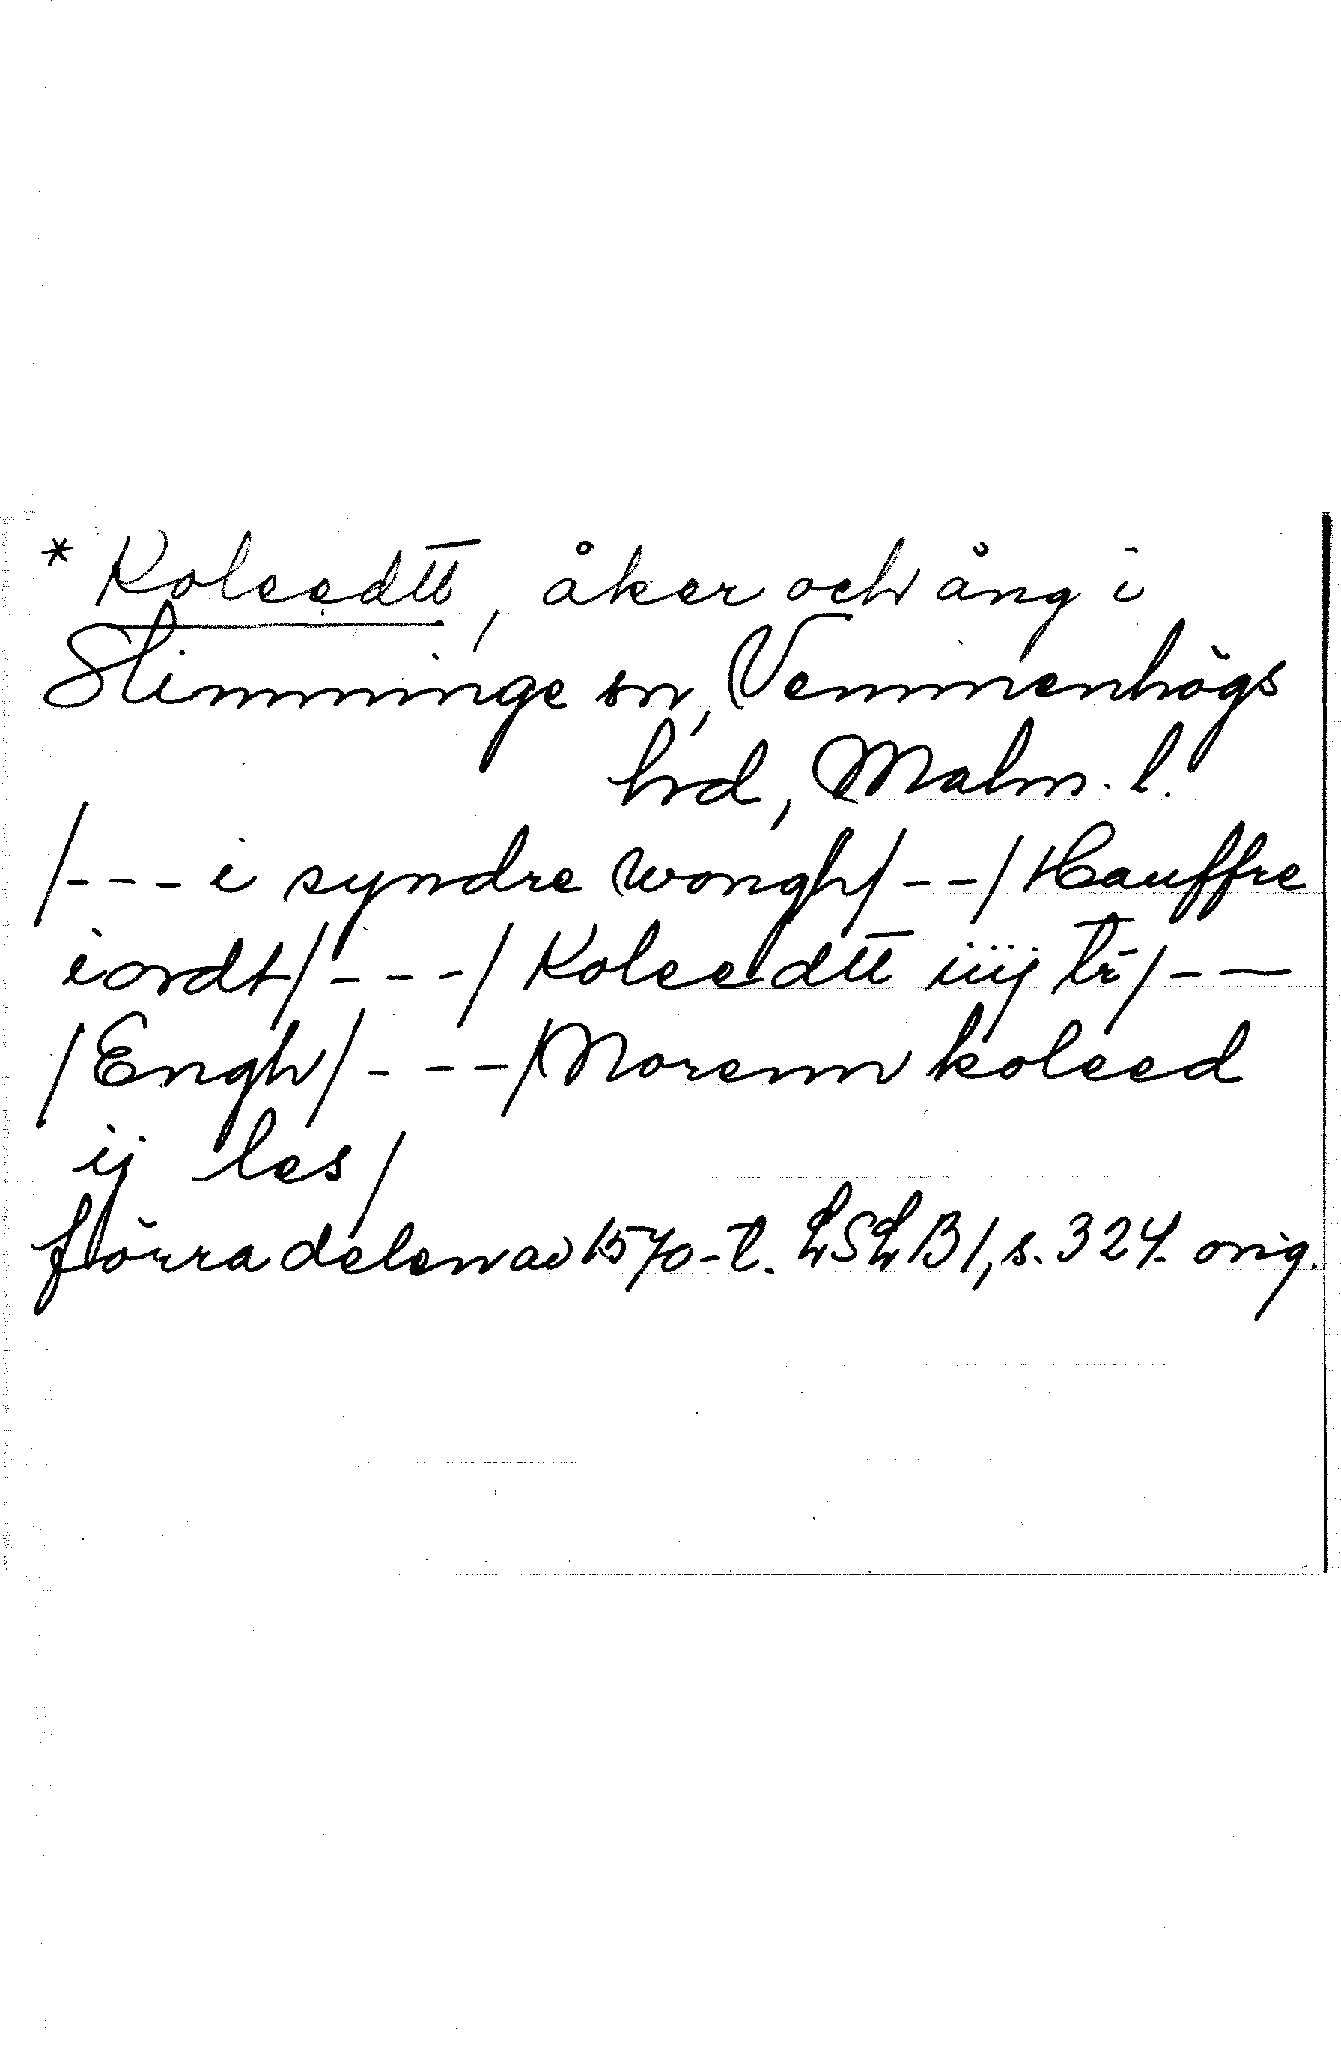 * Koleedtt, åker och äng i
Slimminge sn, Vemmenhögs
hrd, Malm. l.
/--- i syndre wongh/ --/ Hauffre
iordt/ ---/ Koleedtt iiij tr/ --
/Engh/ ---/ Norenn koleed
ij les/
förra delen av 1570-t. LSLB1, s. 324. orig.